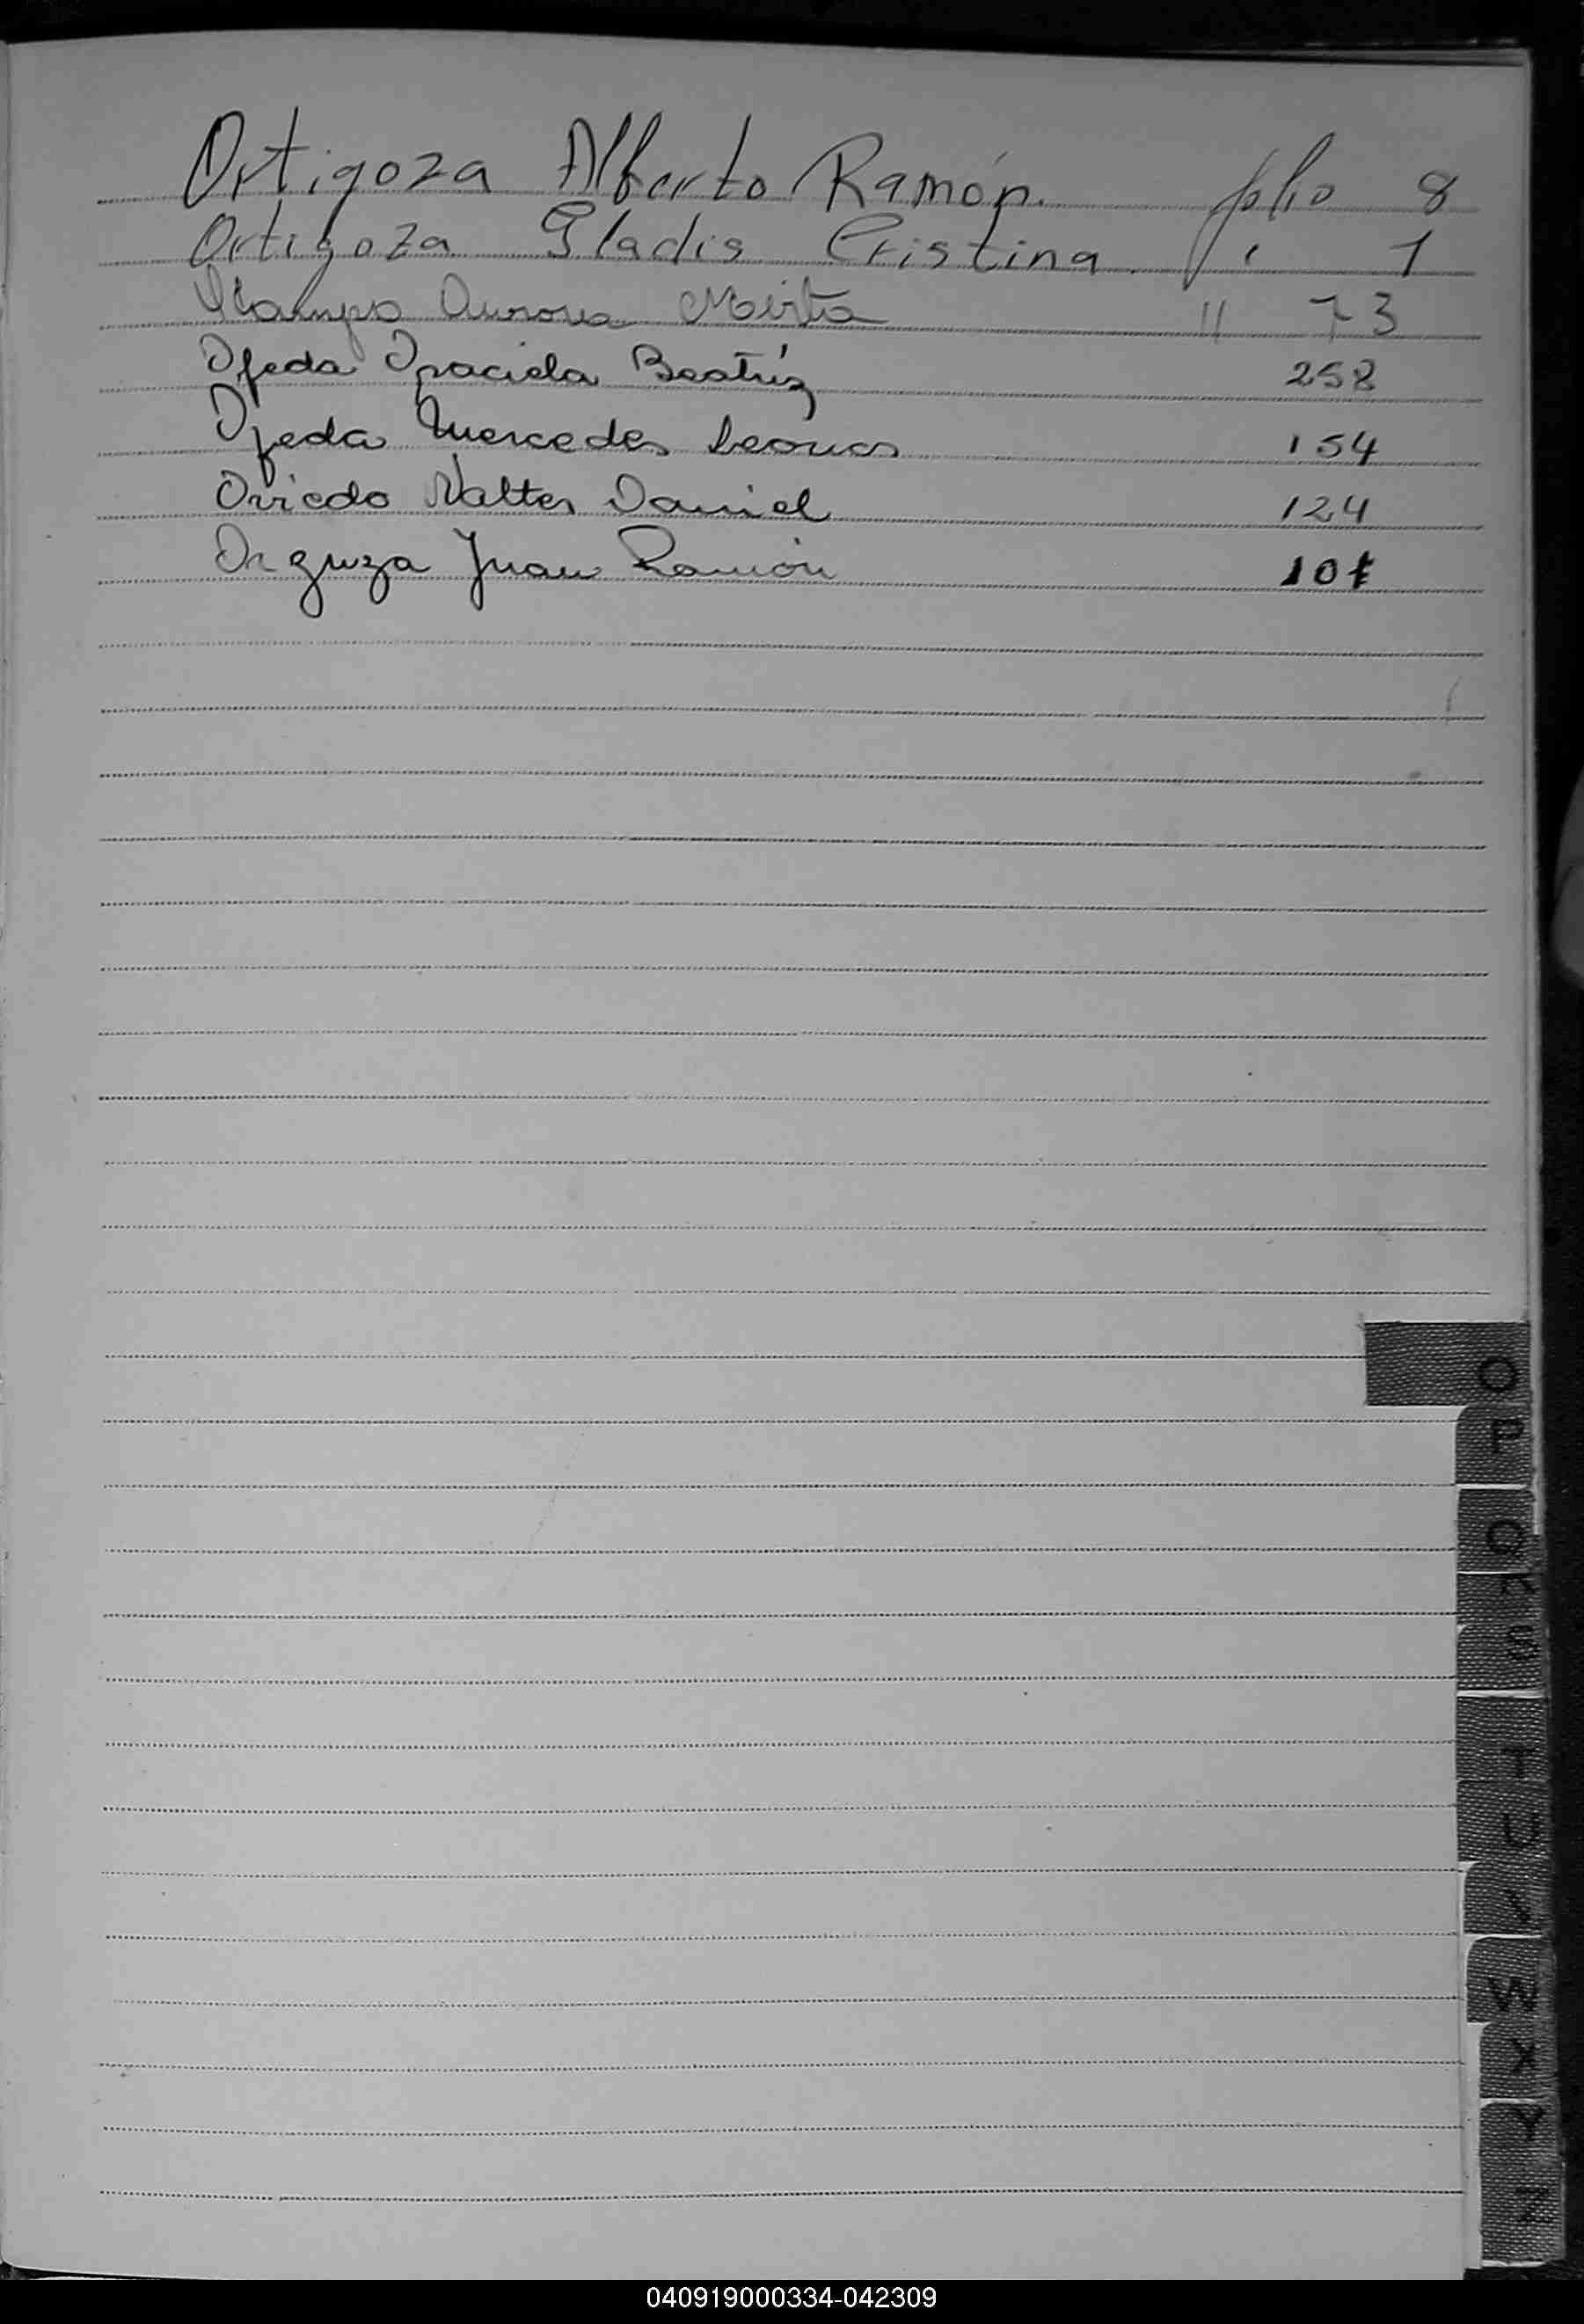 Ortigoza Alberto Ramón. folio 8
Ortigoza Gladis Cristina " 1
Ocampo Aurora Mirta " 73
Ojeda Graciela Beatríz 258
Ojeda Mercedes Leonor 154
Oviedo Walter Daniel 124
Juan Ramón
O
P
Q
R
S
T
U
V
W
X
Y
Z
040919000334-042309